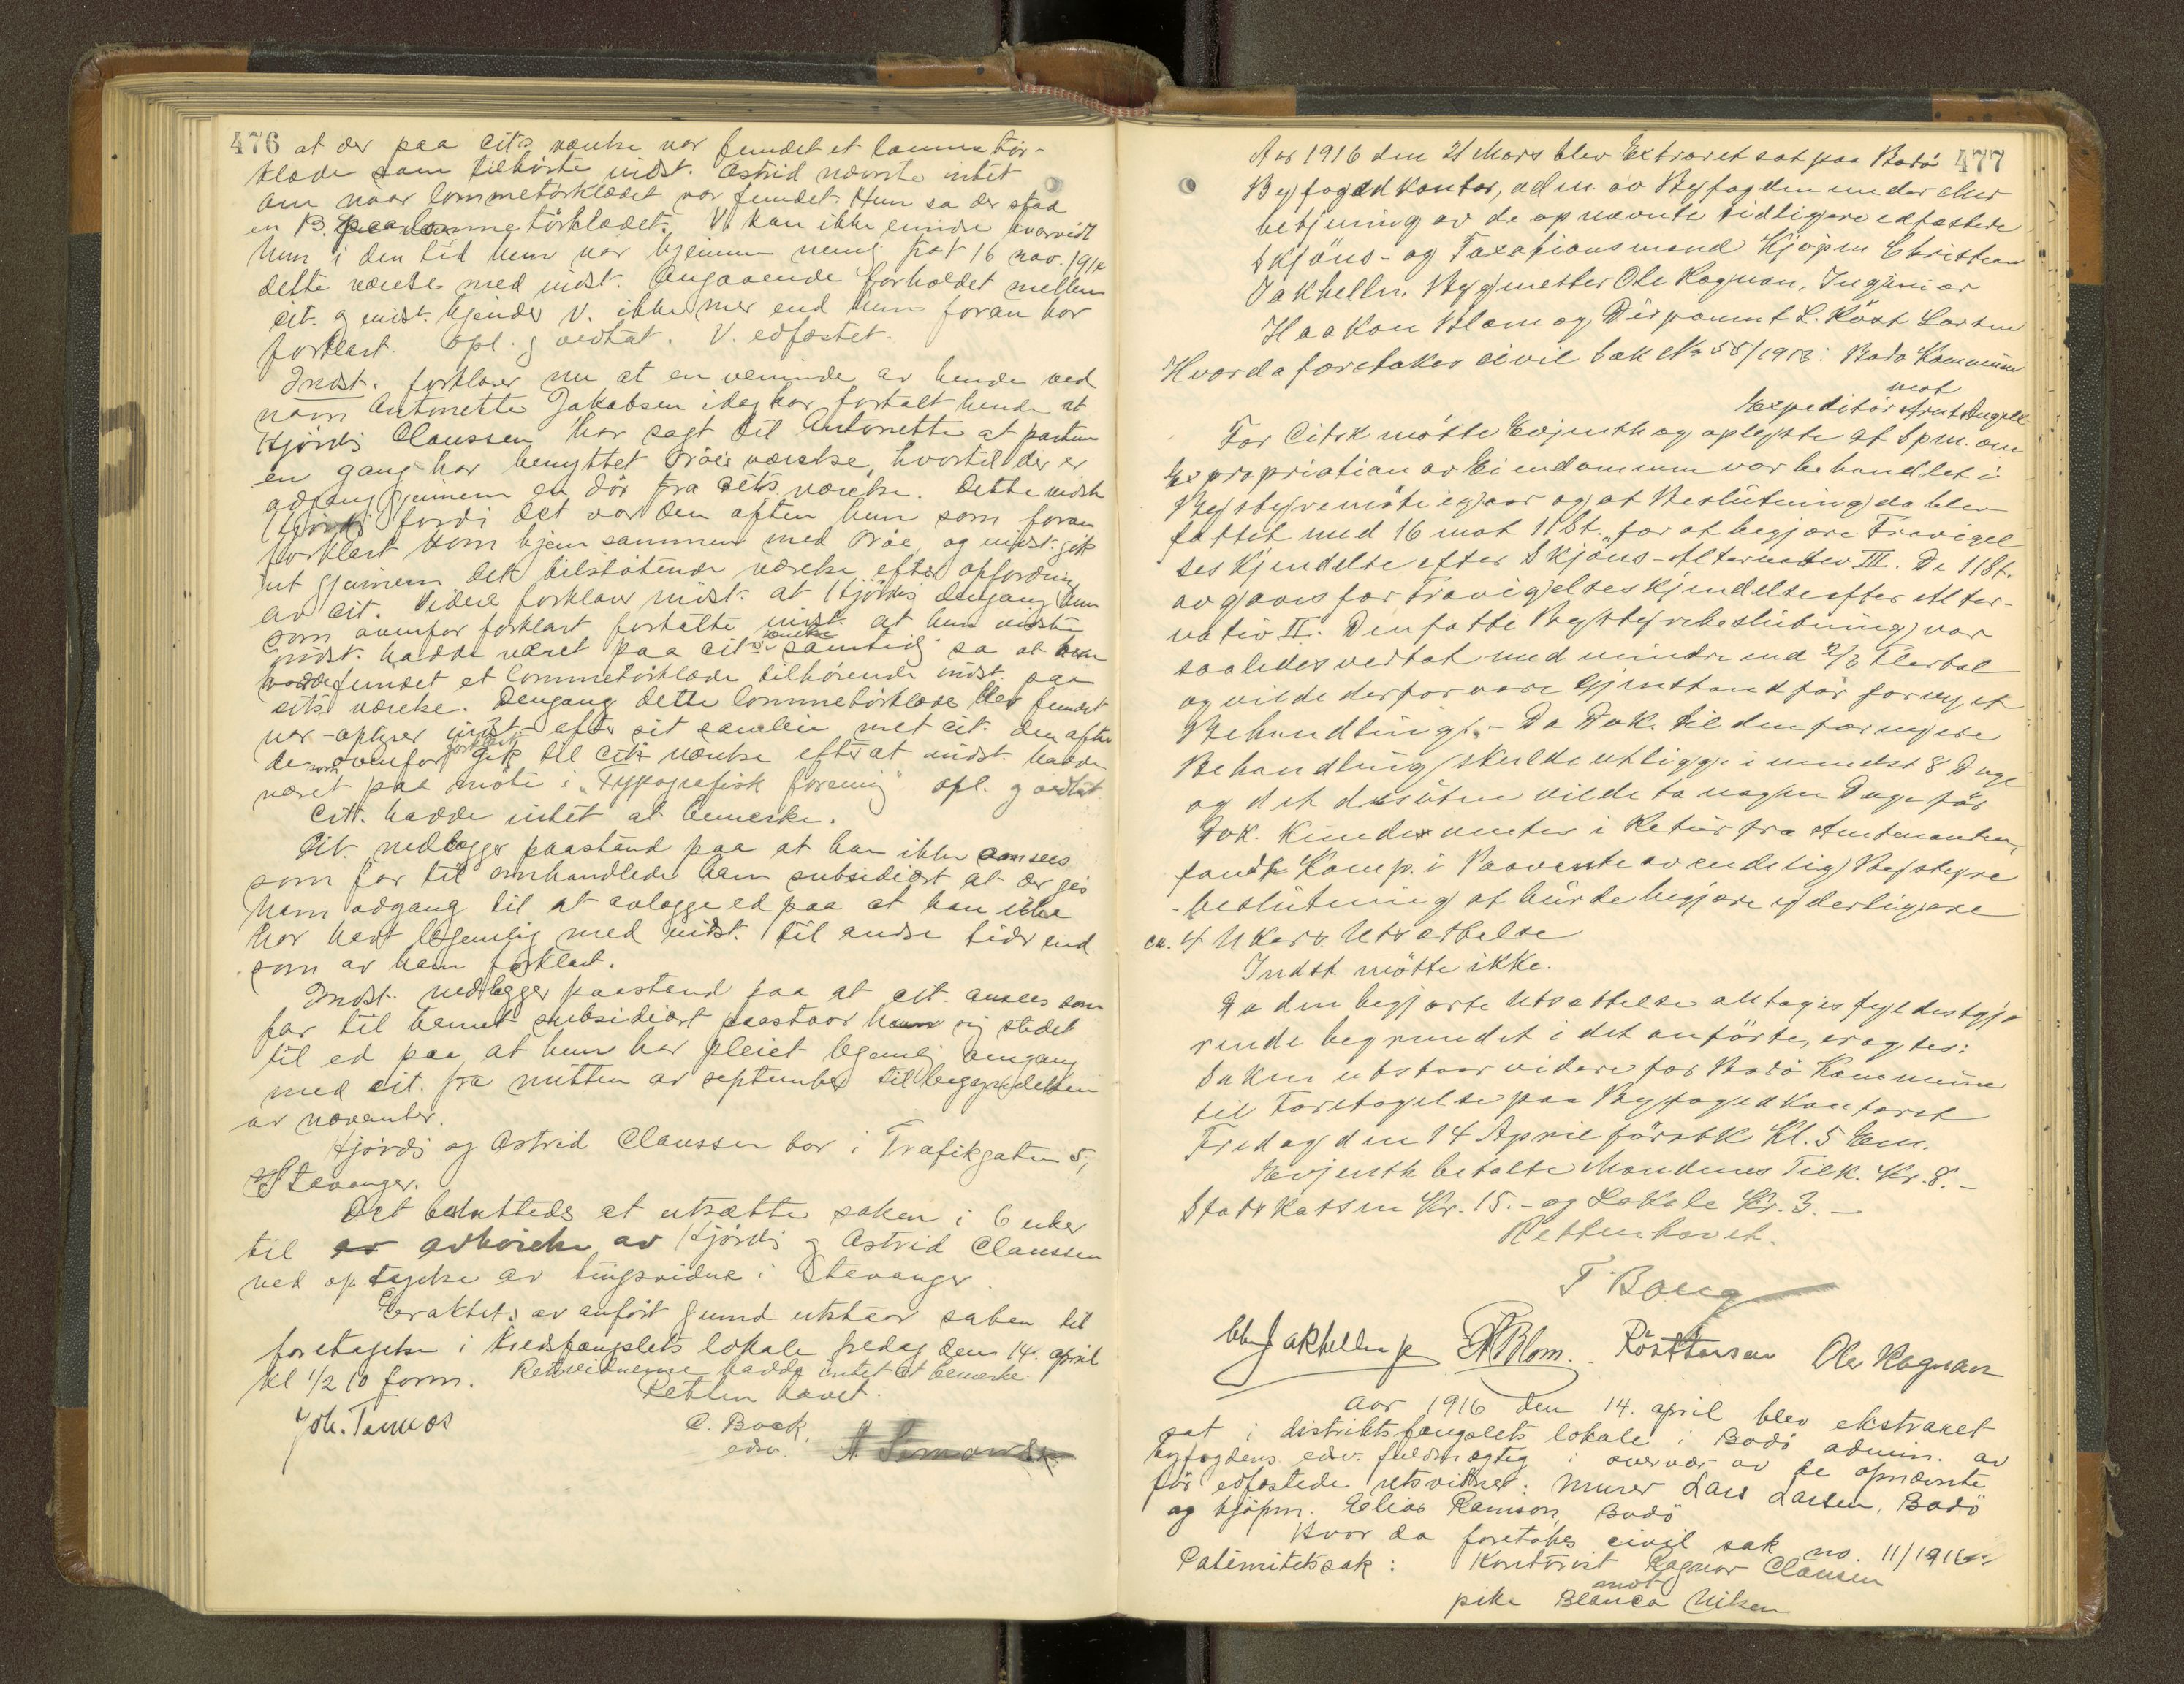 476
at der paa cits værelse var fundet et lommetör-
klæde som tilhörte indst. Astrid nævnte intet
om naar lommetörklædet var fundet. Hun sa der stod
en B. paa lommetörklædet. V. kan ikke erindre hvorvidt
hun i den tid hun var hjemme nemlig frat 16 nov. 191
dette værelse med indst. Angaaende forholdet mellem
cit. og indst. kjender V. ikke mer end hun foran har
forklart. Opl. g vedtat. V. edfæstet.
Indst. forklarer nu at en veninde av hende ved
navn Antonette Jakobsen idag har fortalt hende at
Hjördis Claussen har sagt til Antonette at parten
en gang har benyttet Röes værelse, hvortil der er
adgang gjennem en dör fra cits værelse. Dette vidste
Hjördis fordi det var den aften hun som foran
forklart kom hjem sammen med Röe og indst. gik
ut gjennem det tilstötende værelse efter opfordring
av cit. Videre forklarer indst. at Hjördis dengang hun
som ovenfor forklart fortalte indst. at hun vidste
indst. hadde været paa cits værelse samtidig sa at hun
hadde fundet et lommetörklæde tilhörende indst. paa
cits værelse. Dengang dette lommetörklæde blev fundet
var - oplyser indst - efter sit samleie met cit. den aften
de som ovenfor forklart gik til cits værelse efterat indst. hadde
været paa möte i "Typografisk forening" opl. g vedtat
Cit. hadde intet at bemerke.
Cit. nedlægger paastand paa at han ikke ansees
som far til omhandlede barn subsidiært at der gis
ham adgang til at avlægge ed paa at han ikke
har havt legemlig med indst. til andre tider end
som av ham forklart.
Indst. nedlægger paastand paa at cit. ansees som
far til barnet subsidiært paastaar hun sig stedet
til ed paa at hun har pleiet legemlig omgang
med cit. fra midten av september til begyndelsen
av november.
Hjördis og Astrid Claussen bor i Trafikgaten 5,
Stavanger.
Det besluttedes at utsætte saken i 6 uker
til avhörelse av Hjördis g Astrid Claussen
ved optagelse av tingsvidne i Stavanger.
Eraktet: av anfört grund utstaar saken til
foretagelse i kredsfængslets lokale fredag den 14. april
kl 1/2 10 form. Retsvidnerne hadde intet at bemerke.
Retten hævet.
C. Bock
edsv.
A Simonsen
477
Aar 1916 den 21 Mars blev Extraret sat paa Bodö
Byfogedkontor, adm. av Byfogden under Med
betjening av de opnævnte tidligere edfæstede
Skjöns- og Taxationsmænd Kjöpm Christian
Jakhelln, Bygmester Ole Kogman, Ingeniör
Haakon Blom og Disponent L. Röst Larsen
Hvorda foretakes civil Sak No 58/1913: Bodö Kommune
mot
Expeditör Arnt Angell
For Citrk mötte Evjenth og oplyste at Spm. om
Expropriation av Eiendommen var behandlet i
Bystyremöte igaar og at Beslutning da blev
fattet med 16 mot 11 St. for at begjære Fravigel
seskjendelse efter Skjöns-Alternativ III. De 11 St.
avgaves for Fravigelseskjendelse efter Alter-
nativ II. Den fatte Bystyrebeslutning var
saaledes vedtat med mindre end 2/3 Flertal
og vilde derfor være Gjenstand för fornyet
Behandling. - Da Dok. til den fornyede
Behandling skulde utligge i mindst 8 Dage
og det desuten vilde ta nogen Dage för
Dok. kunde ventes i Retur fra Amtmanden,
fandt Komp. i Paavente av endelig Bystyre
-beslutning at burde begjære yderligere
ca. 4 Ukers Utsættelse
Indst. mötte ikke.
Da den begjærte Utsættelse antages fyldestgjö
rende begrundet i det anförte, eragtes:
Saken utstaar videre for Bodö Kommune
til Foretagelse paa Byfogedkontoret
Fredag den 14 April förstk Kl. 5 Em.
Evjenth betalte Mændenes Tilk. Kr. 8.-
Statskassen Kr. 15.- og Lokale Kr. 3.-
Retten hævet.
Chr Jakhelln jr H Blom. Röst Larsen Ole Kogman
Aar 1916 den 14. april blev ekstraret
sat i distriktsfængslets lokale i Bodö admin. av
byfogdens edsv. fuldmægtig i overvær av de opnævnte
för edfæstede retsvidner: Murer Lars Larsen, Bodö
og kjöpm. Elias Ramson, Bodö
Hvor da foretakes civil sak no. 11/1916:
Paternitetssak: Kontorist Ragnar Clausen
mot
pike Blanca Nilsen